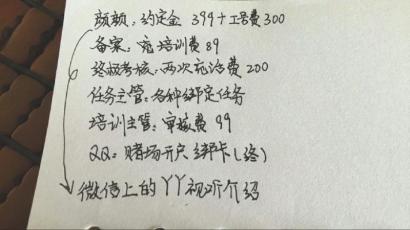 颜颜：约定金 399+工号费300
备案：充培训费 89
终极考核：两次充治费 200
任务主管：各种绑定任务
培训主管：审核费 99
QQ：赌场开户 绑卡(终)
微信上的YY视听介绍